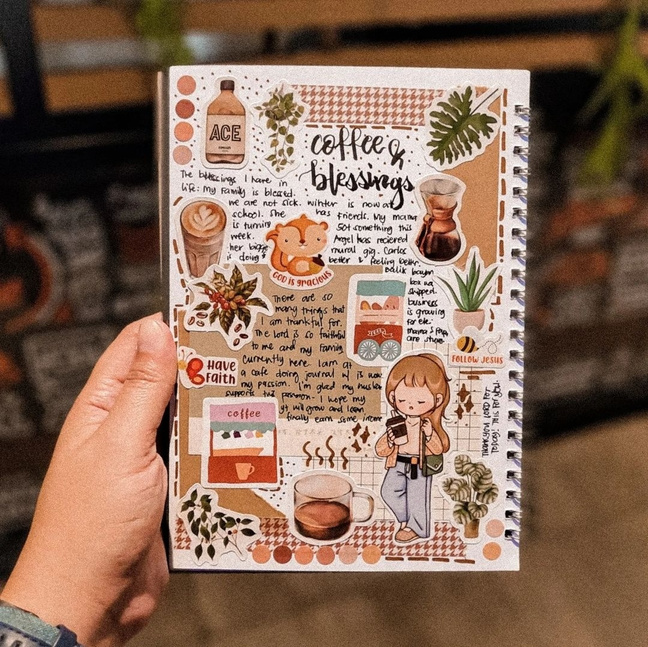 ACE
coffee &
blessings
The blessings I have in
life: My Family is blessed.
we are not sick. winter is now at
school. She has friends. My mama
is turning 50t something this
week. Angel has recieved
her bigge mural gig. Carlos
is doing better & feeling better.
Balik bayan
box was
shipped.
business
is growing
for ele.
mama & Papa
are here
GOD IS GRACIOUS
There are so
many things that
I am thankful for.
The Lord is so faithful
to me and my Family
currently here I am at
a cafe doing journal w/ is now
my passion. I'm glad my husban
supports this passion. I hope my
yt will grow and I can
finally earn some income
Have
Faith
FOLLOW JESUS
coffee
Thankyou Lord for
today! This is